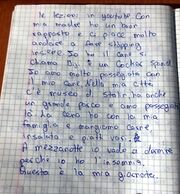 le lezioni in youtube. Con
mia madre ho un buon
rapporto e ci piace molto
andare a fare shopping
insieme. Io ho il cane si
chiama By, è un Cocker Spaniel
Io amo molto passegiata con
il mio cane. Nella mia città
c'è museo di stalin, ha anche
un grande parco e amo passegiata
là. La cena ho con la mia
famiglia e mangiamo carne,
insalata e patate.
A mezzanotte io vado a dormire
perchè io ho l'insonnia.
Questa è la mia giornata.